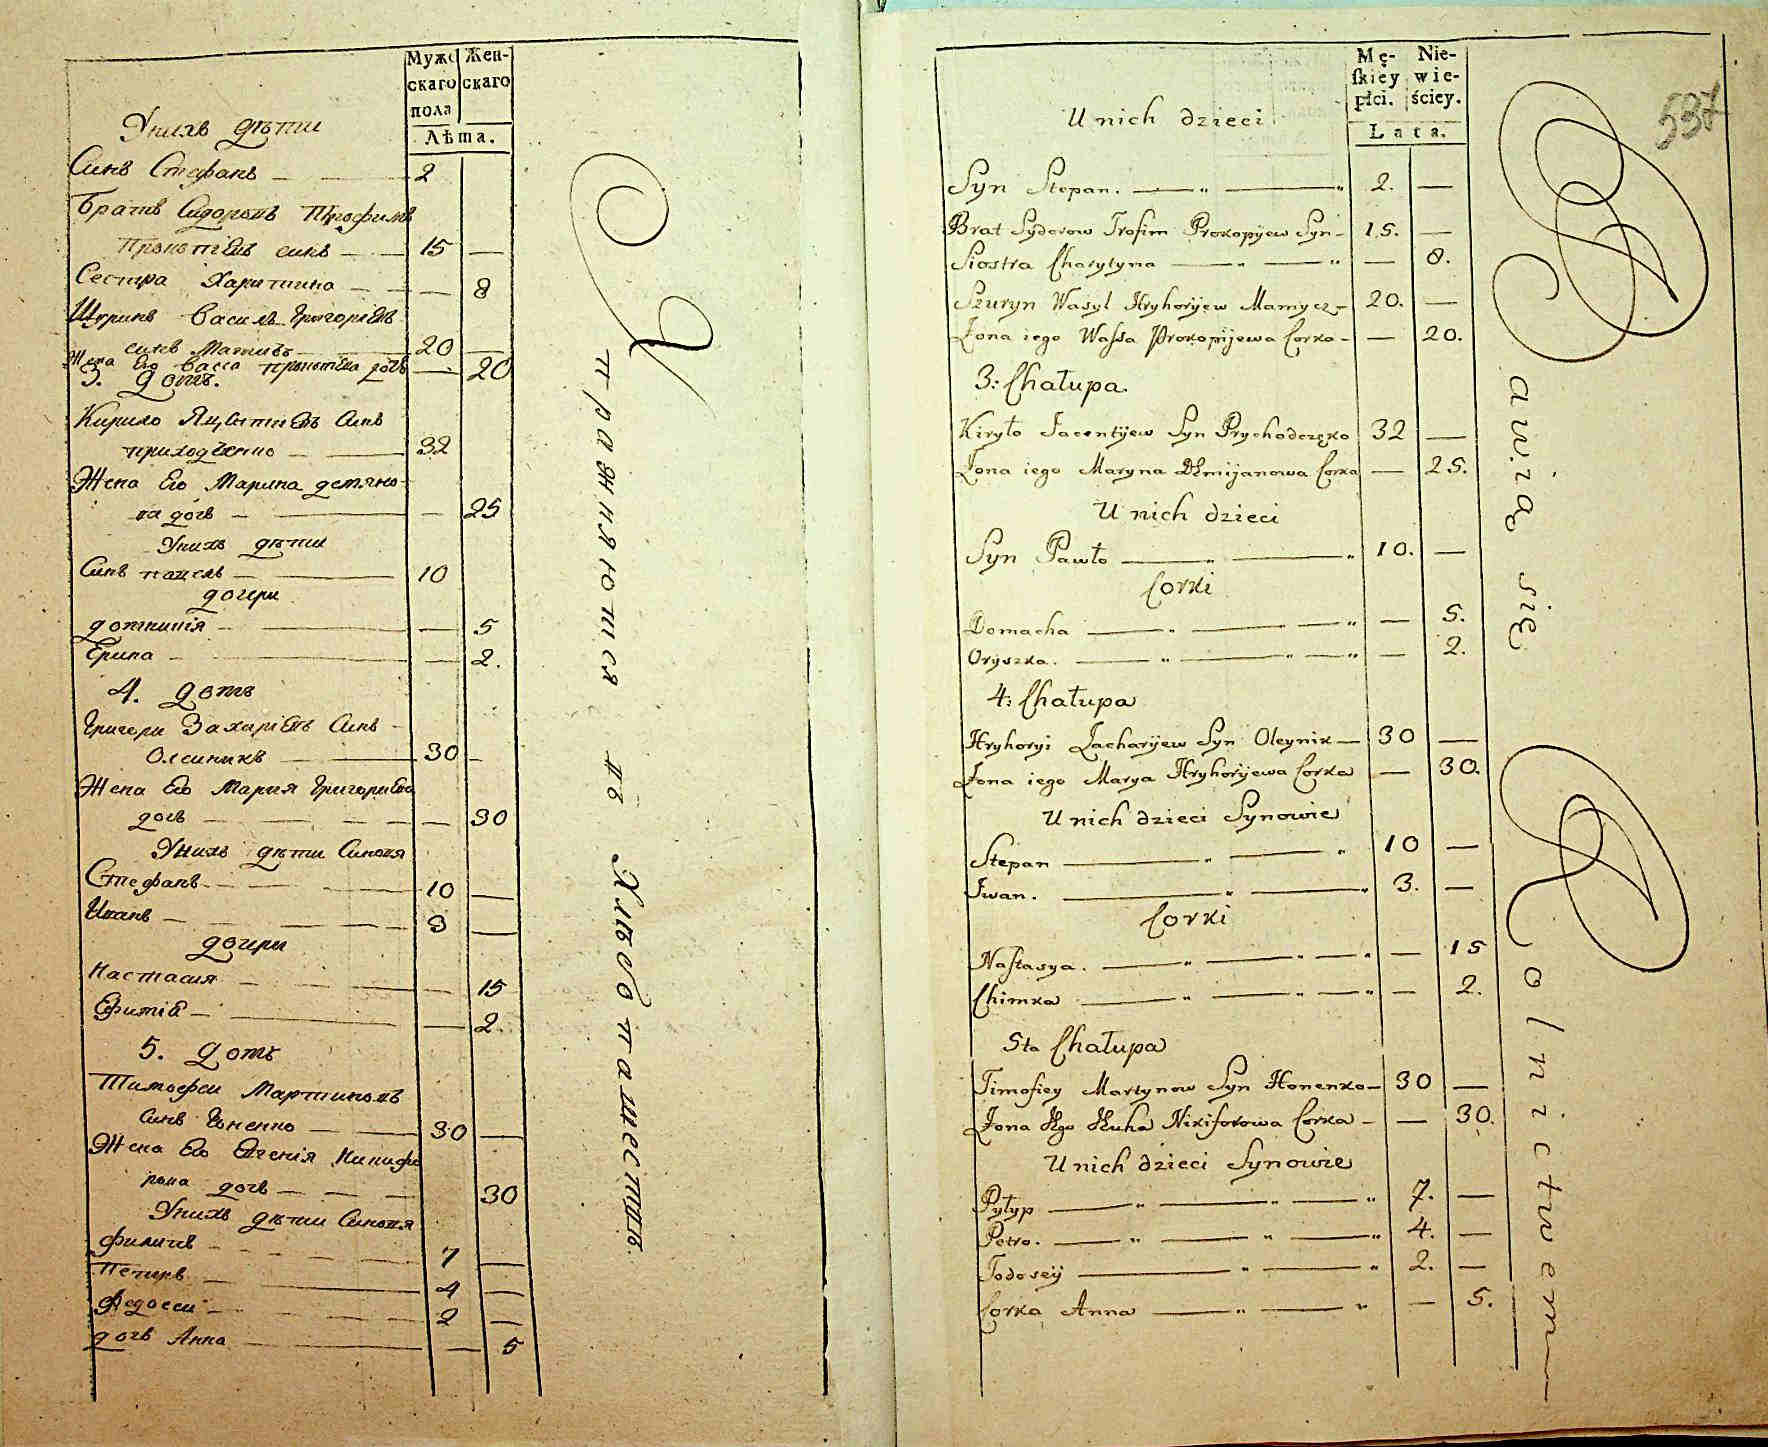 Мужс Жен-
скаго скаго
пола
Лѣта.
Унихъ дѣти
Синъ Стефанъ 2
Братъ Сидоровъ Трофимъ
Прокопіевъ синъ 15
Сестра Харитина 8
Шуринъ Василь Григоріевъ
синъ 20
Жена Его Васса Прокопіева дочь 20
3. Домъ.
Кирило Яцентиевъ Синъ
приходченко 32
Жена Его Марина демяно-
ва дочь 25
Унихъ дѣти
Синъ павелъ 10
дочери
домникія 5
Ерина 2.
4. домъ
Григори Захаріевъ Синъ
Олейникъ 30
Жена Его Мария Григориева
дочь 30
Унихъ дѣти Синовя
Стефанъ 10
Иванъ 3
дочери
Настасия 15
Ефимія 2.
5. домъ
Тимофеи Мартиновъ
Синъ Гоненко 30
Жена Его Евгенія Никифо
рова дочь 30
Унихъ дѣти Синовя
Филипъ 7
Петръ 4
Федосеи 2
дочь Анна 5
Упражняются въ Хлѣбопашествѣ.
Mę- Nie-
skiey wie-
płci. ściey.
Lata.
537
U nich dzieci
Syn Stepan. 2.
Brat Sydorow Trofim Prokopijew Syn 15.
Siostra Charytyna 8.
Szuryn Wasyl Hryhoryjew 20.
Żona iego Wassa Prokopijewa Corka 20.
3: Chałupa.
Kiryło Jacentijew Syn Prychodczęko 32
Żona iego Maryna Dźmijanowa Corka 25.
U nich dzieci
Syn Pawło 10.
Corki
Domacha 5.
Oryszka. 2.
4: Chałupa
Hryhoryi Zacharijew Syn Oleynik 30
Żona iego Marya Hryhoryjewa Corka 30.
U nich dzieci Synowie
Stepan 10
Jwan. 3.
Corki
Nastasya. 15
Chimka 2.
5ta Chałupa
Timofiey Martynow Syn Honenko 30
Żona Jego Nikiforowa Corka 30.
U nich dzieci Synowie
Pyłyp 7.
Petro. 4.
Todosey 2.
Corka Anna 5.
Bawią się Rolnictwem